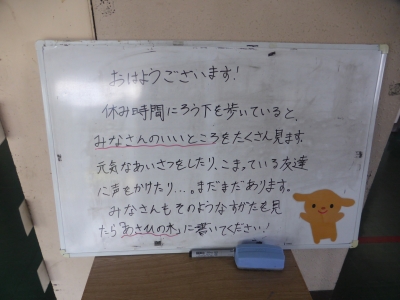 おはようございます!
休み時間にろう下を歩いていると、
みなさんのいいところをたくさん見ます。
元気なあいさつをしたり、こまっている友達
に声をかけたり…。まだまだあります。
みなさんもそのようなすがたを見
たら「あさひの木」に書いてください!